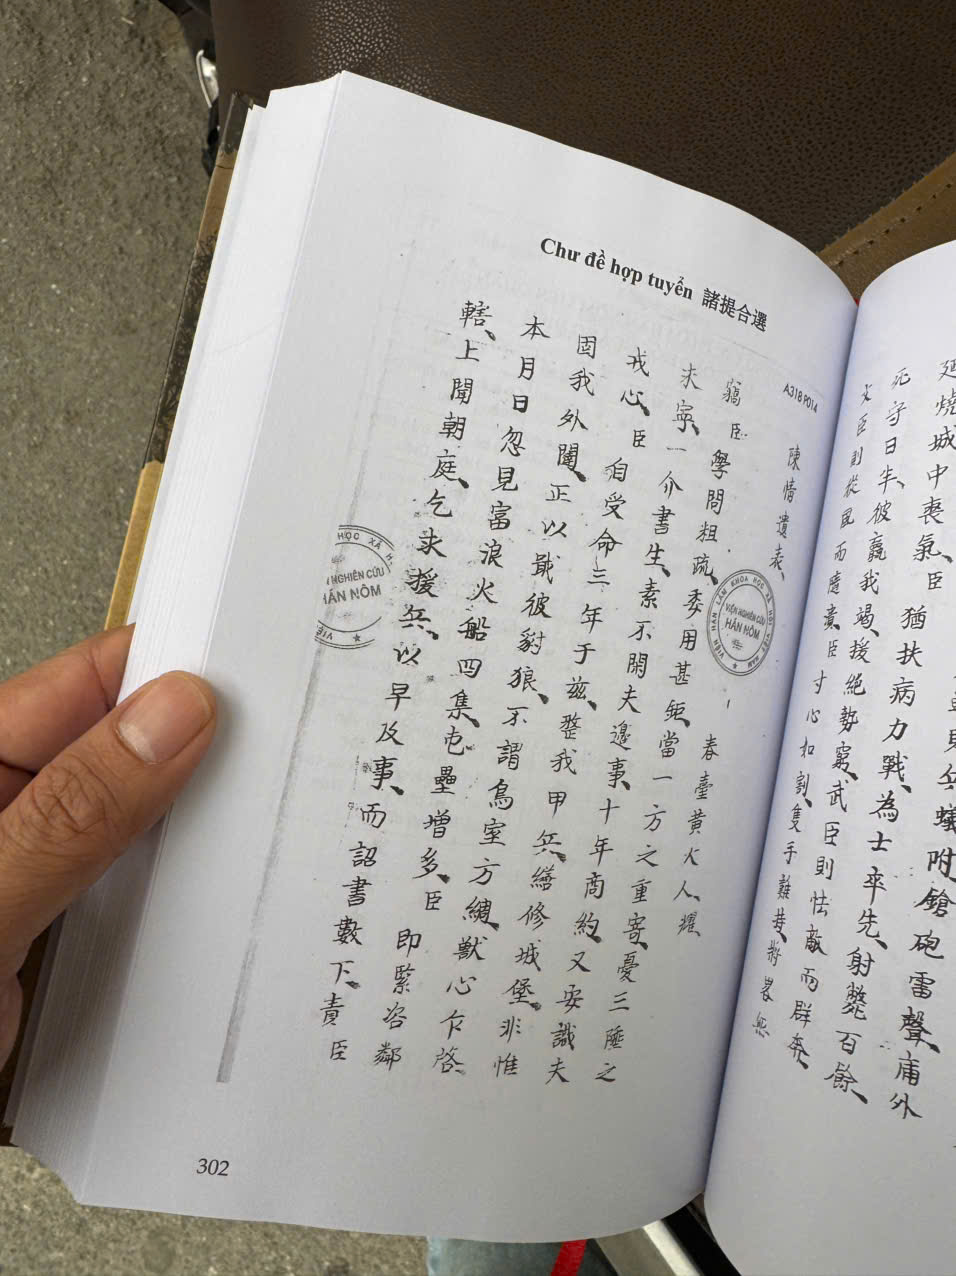 Chư đề hợp tuyển 諸提合選
A318 P014
陳情遺表
春臺黃大人耀
竊臣學問粗疏委用甚鉅當一方之重寄憂三陲之
未寧一介書生素不閑夫邊事十年商約又安識夫
戎心臣自受命三年于茲整我甲兵繕修城堡非惟
固我外閫正以戢彼豺狼不謂鳥室方綢獸心乍啓
本月日忽見富浪火船四集屯壘增多臣即緊咨鄰
轄上聞朝庭乞求援兵以早及事而詔書數下責臣
VIỆN HÀN LÂM KHOA HỌC XÃ HỘI VIỆT NAM
VIỆN NGHIÊN CỨU
HÁN NÔM
HỌC XÃ H
N NGHIÊN CỨU
HÁN NÔM
302
兵蟻附鎗砲雷聲庸外
燒城中喪氣臣猶扶病力戰為士卒先射斃百餘
死守日半彼贏我竭援絕勢窮武臣則怯敵而群奔
文臣則從風而隨潰臣寸心如割隻手難持將畧無